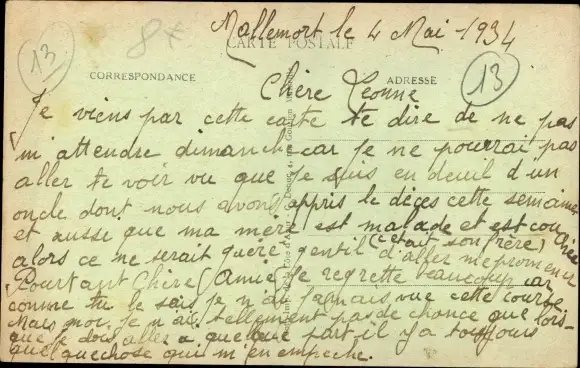 Mallemort le 4 Mai 1934
CARTE POSTALE
13
8
13
CORRESPONDANCE
ADRESSE
Chère Leonne
Je viens par cette carte te dire de ne pas
m'attendre dimanche car je ne pourrai pas
aller te voir vu que je suis en deuil d'un
oncle dont nous avons appris le décès cette semaine
et aussi que ma mère est malade et est couchée
(c'était son frère)
alors ce ne serait guère gentil d'aller me promener
Pourtant Chère Amie je regrette beaucoup car
comme tu le sais je n'ai jamais vue cette course
Mais moi je n'ai tellement pas de chance que lors-
que je dois aller a quelque part il y a toujours
quelquechose qui m'en empeche.